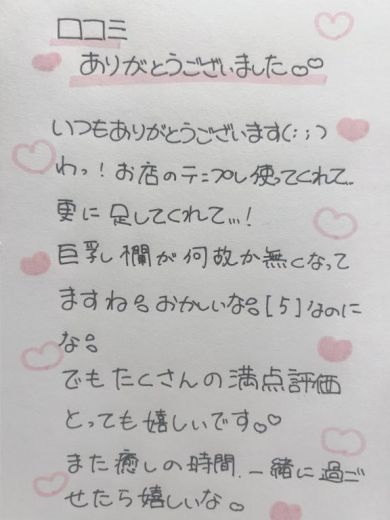 口コミ
ありがとうございました
いつもありがとうございます(;;)
わっ!お店のテンプレ使ってくれて…
更に足してくれて…!
巨乳欄が何故か無くなって
ますね。おかしいな。[5]なのに
な。
でもたくさんの満点評価
とっても嬉しいです♡
また癒しの時間、一緒に過ご
せたら嬉しいな。